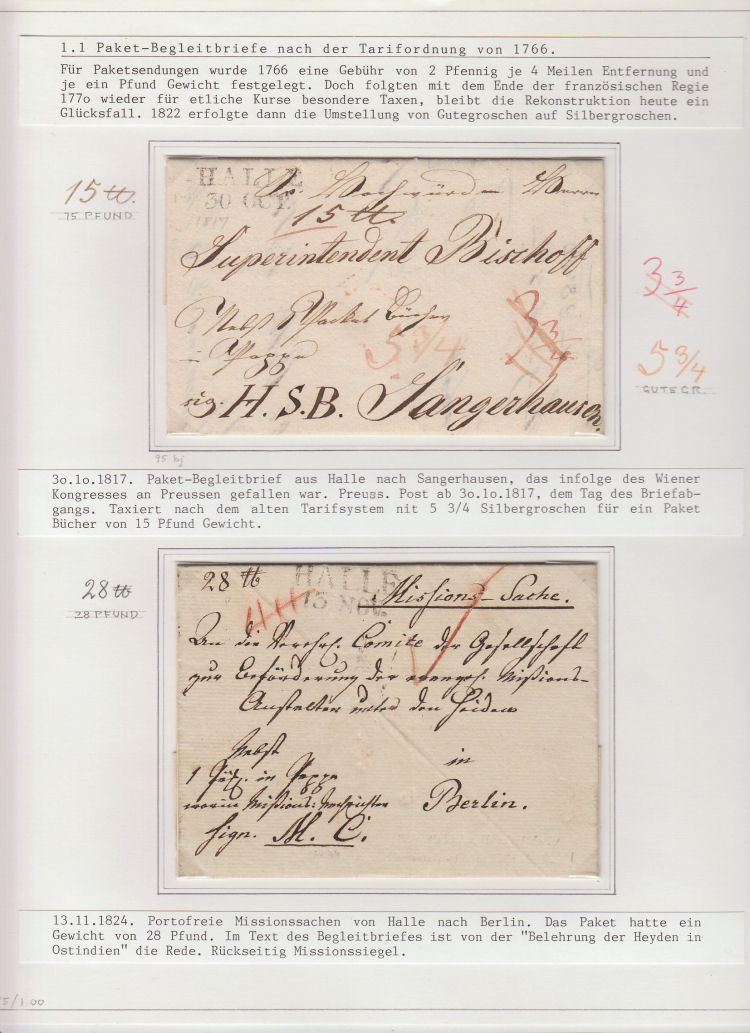 1.1 Paket-Begleitbriefe nach der Tarifordnung von 1766.
Für Paketsendungen wurde 1766 eine Gebühr von 2 Pfennig je 4 Meilen Entfernung und
je ein Pfund Gewicht festgelegt. Doch folgten mit dem Ende der französischen Regie
177o wieder für etliche Kurse besondere Taxen, bleibt die Rekonstruktion heute ein
Glücksfall. 1822 erfolgte dann die Umstellung von Gutegroschen auf Silbergroschen.
15 ℔.
15 PFUND
HALLE
30 OCT.
1817
Hochwürden Herrn
15 ℔.
Superintendent Bischoff
Nebst 1 Packet Bücher
in Pappe
5 3/4
3 3/4
sig. H. S. B. Sangerhausen.
3 3/4
5 3/4
GUTEGR.
3o.1o.1817. Paket-Begleitbrief aus Halle nach Sangerhausen, das infolge des Wiener
Kongresses an Preussen gefallen war. Preuss. Post ab 3o.1o.1817, dem Tag des Briefab-
gangs. Taxiert nach dem alten Tarifsystem nit 5 3/4 Silbergroschen für ein Paket
Bücher von 15 Pfund Gewicht.
28 ℔
28 PFUND
28 ℔
HALLE
13 NOV.
Missions-Sache.
An die Verehrl. Comité der Gesellschaft
zur Beförderung der evangel. Missions-
Anstalten unter den Heiden
Nebst
in
1 in Pappe
worin Missions-Nachrichten
Berlin.
sign. M. C.
13.11.1824. Portofreie Missionssachen von Halle nach Berlin. Das Paket hatte ein
Gewicht von 28 Pfund. Im Text des Begleitbriefes ist von der "Belehrung der Heyden in
Ostindien" die Rede. Rückseitig Missionssiegel.